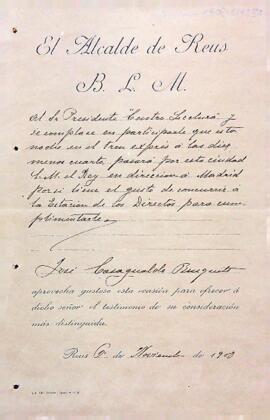 El Alcalde de Reus
B. L. M.
Al Sr. Presidente "Centro Lectura" y
se complace en participarle que esta
noche en el tren expres á las diez
menos cuarto, pasará por esta ciudad
S. M. el Rey en direccion á Madrid
por si tiene el gusto de concurrir á
la Estacion de los Directos para cum-
plimentarle.
José Casagualda Busquets
aprovecha gustoso esta ocasión para ofrecer á
dicho señor el testimonio de su consideración
más distinguida.
Reus 6 de Noviembre de 1908